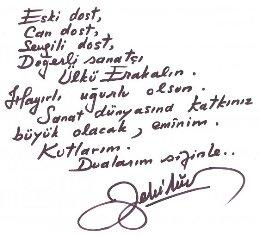 Eski dost,
Can dost,
Sevgili dost,
Değerli sanatçı
Ülkü Erakalın.
Hayırlı uğurlu olsun.
Sanat dünyasında katkınız
büyük olacak, eminim.
Kutlarım.
Dualarım sizinle..